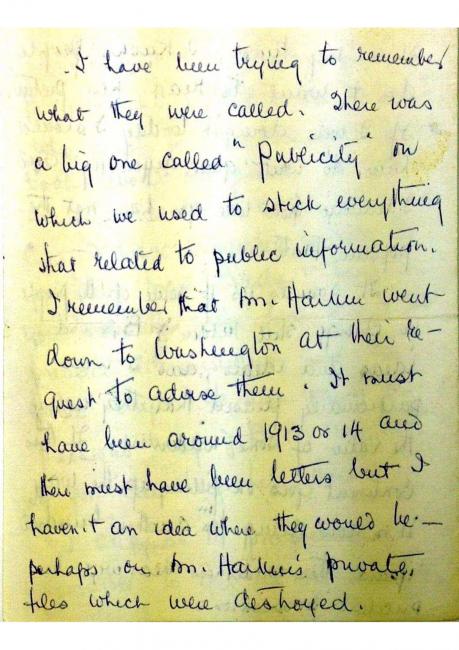 I have been trying to remember
what they were called. There was
a big one called "Publicity" on
which we used to stick everything
that related to public information.
I remember that Mr. Harkin went
down to Washington at their re-
quest to advise them. It must
have been around 1913 or 14 and
there must have been letters but I
haven't an idea where they would be -
perhaps on Mr. Harkin's private
files which were destroyed.